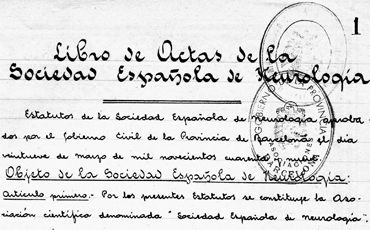 1
Libro de Actas de la
Sociedad Española de Neurología
Estatutos de la Sociedad Española de Neurología aproba-
dos por el Gobierno Civil de la Provincia de Barcelona el día
veintinueve de marzo de mil novecientos cuarenta y nueve.
Objeto de la Sociedad Española de Neurología:
Artículo primero.- Por los presentes Estatutos se constituye la Aso-
ciación científica denominada "Sociedad Española de Neurología".
GOBIERNO PROVINCIA
ASOCIACIONES